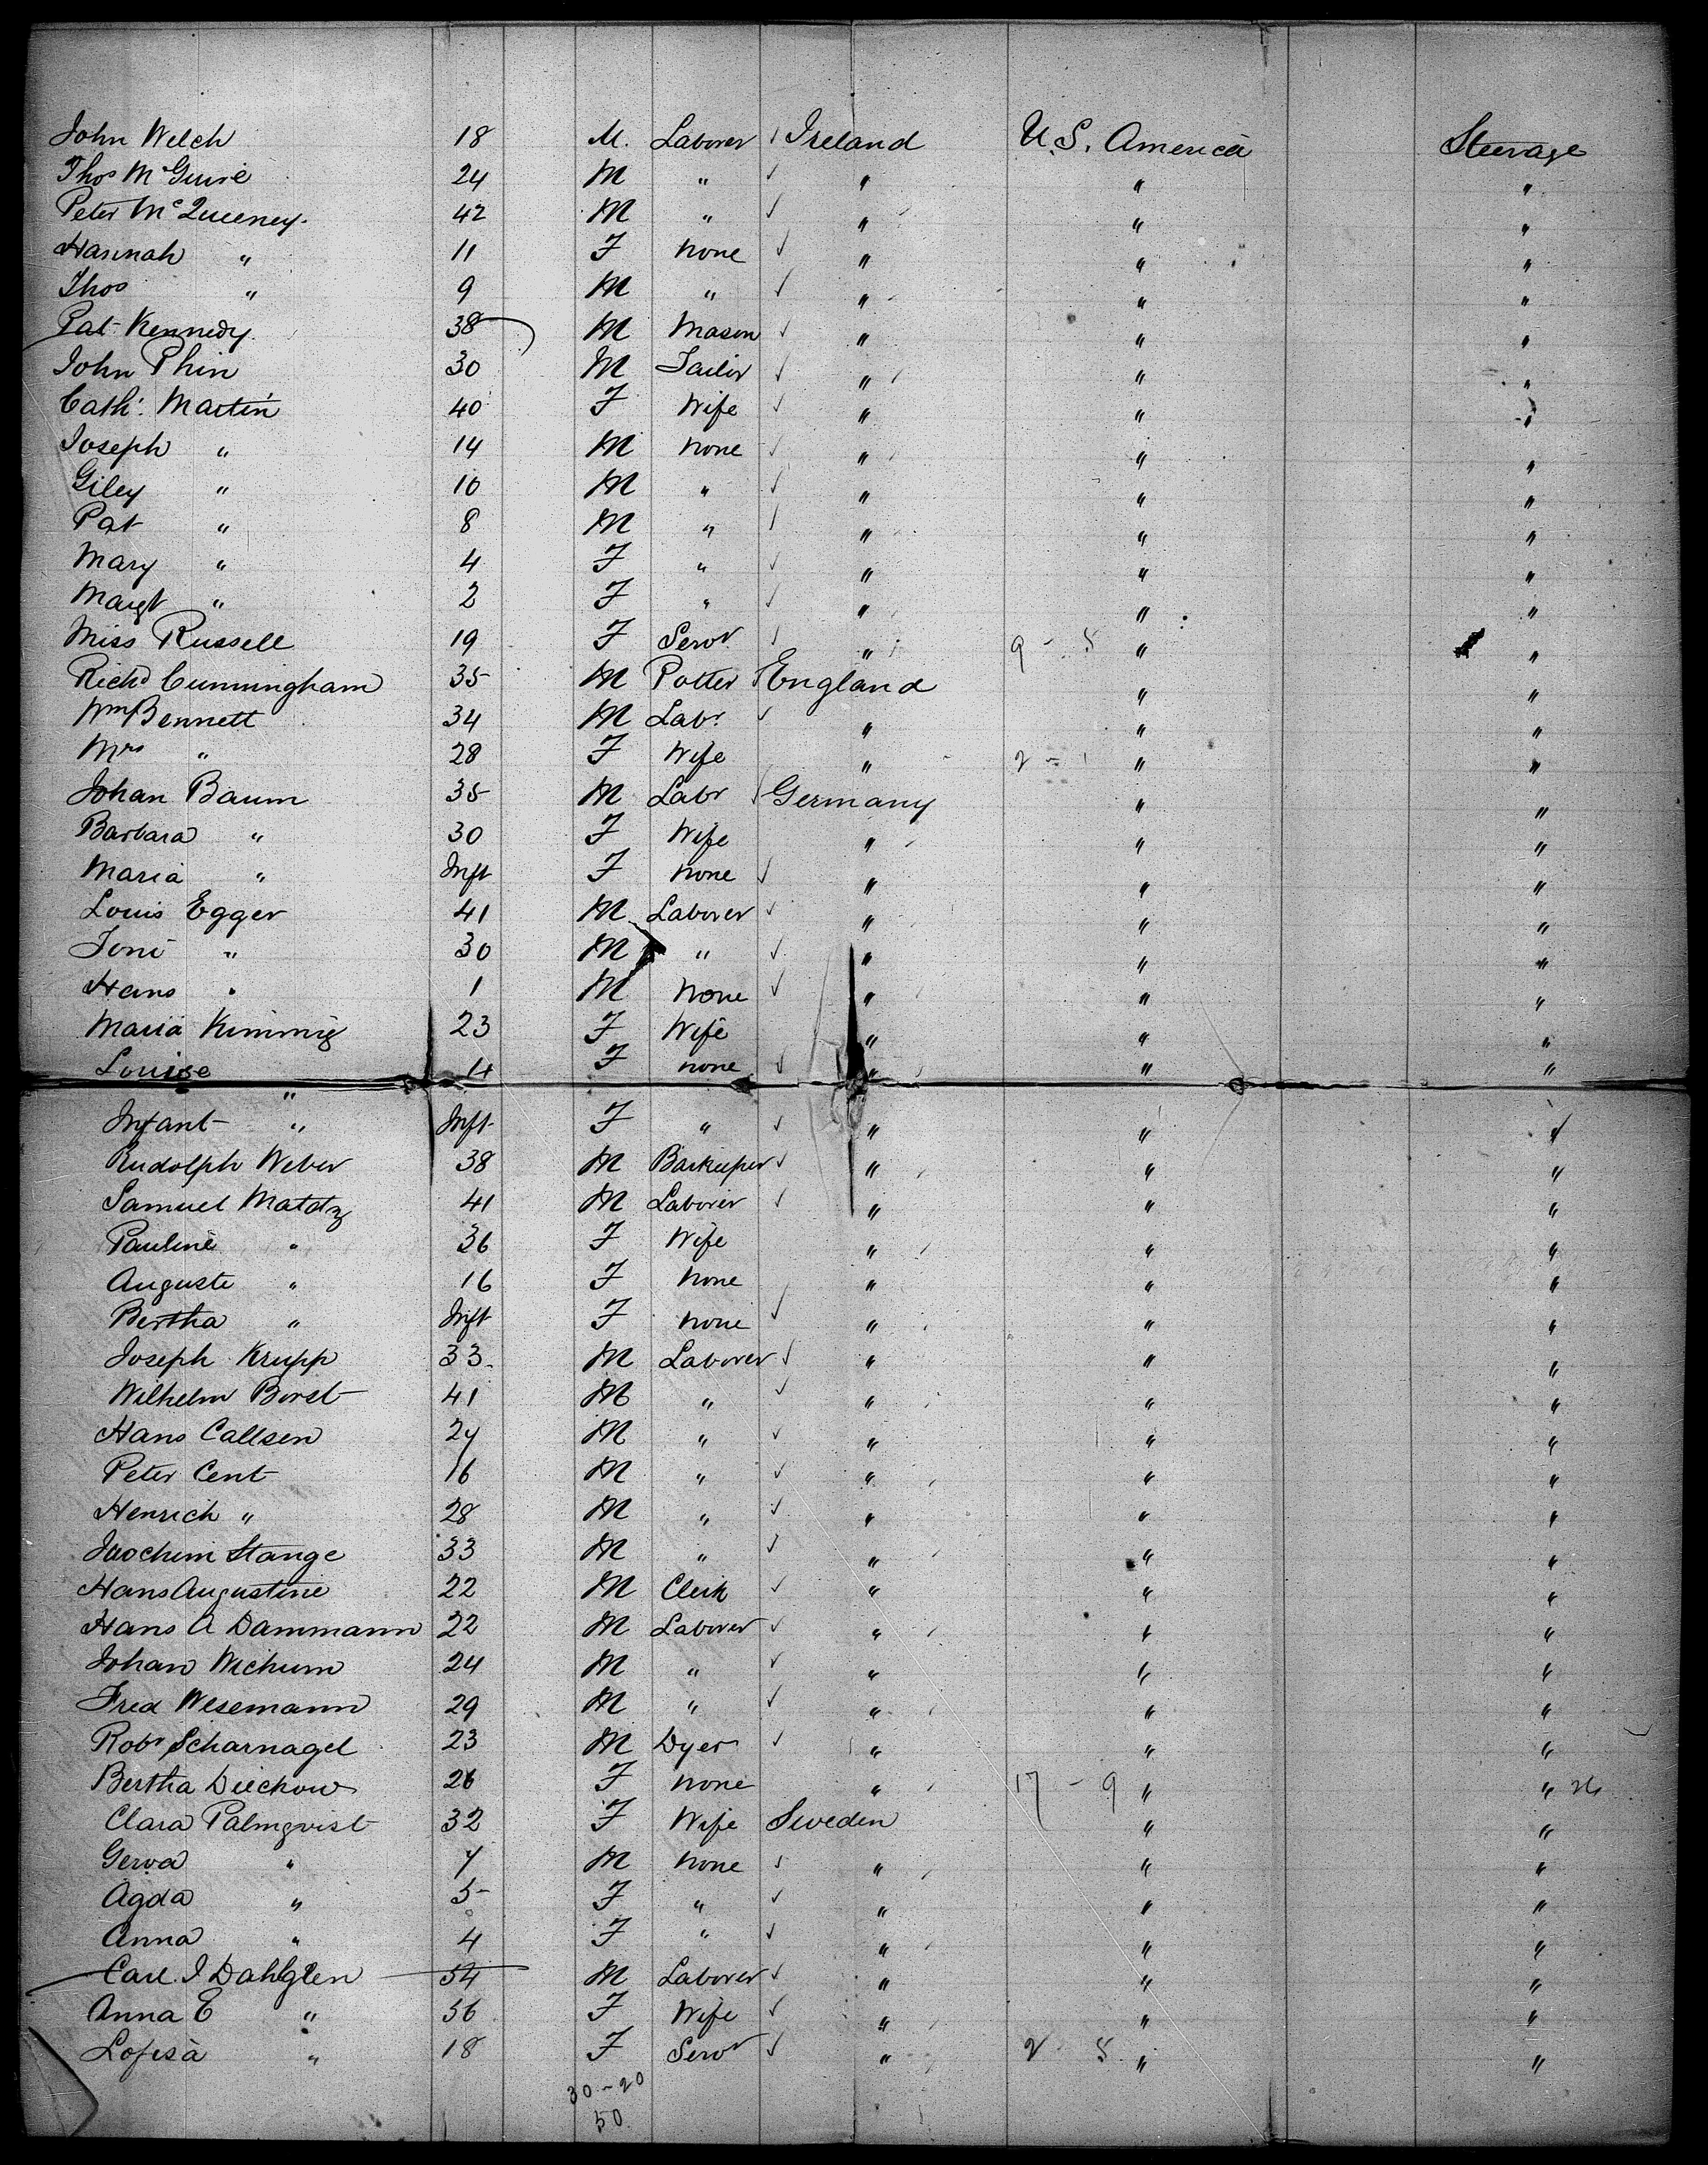 John Welch 18 M. Laborer Ireland U.S. America Steerage
Thos McGuire 24 M " " " "
Peter McQueeney. 42 M " " " "
Hannah " 11 F None " " "
Thos " 9 M " " " "
Pat Kennedy 38 M Mason " " "
John Phin 30 M Tailor " " "
Cath. Martin 40 F Wife " " "
Joseph " 14 M None " " "
Giley " 10 M " " " "
Pat " 8 M " " " "
Mary " 4 F " " " "
Margt " 2 F " " " "
Miss Russell 19 F Servt " 9 - 5 " "
Richd Cunningham 35 M Potter England " "
Wm Bennett 34 M Labr " " "
Mrs " 28 F Wife " 2 - 1 " "
Johan Baum 35 M Labr Germany " "
Barbara " 30 F Wife " " "
Maria " Inft F None " " "
Louis Egger 41 M Laborer " " "
" 30 M " " " "
Hans " 1 M None " " "
Maria Kimmig 23 F Wife " " "
Louise " 4 F None " " "
Infant " Inft F " " " "
Rudolph Weber 38 M Barkeeper " " "
Samuel Matdz 41 M Laborer " " "
Pauline " 36 F Wife " " "
Auguste " 16 F None " " "
Bertha " Inft F None " " "
Joseph Krupp 33 M Laborer " " "
Wilhelm Borst 41 M " " " "
Hans Callsen 27 M " " " "
Peter Cent 16 M " " " "
Henrich " 28 M " " " "
Jaochim Stange 33 M " " " "
Hans Augustine 22 M Clerk " " "
Hans A Dammann 22 M Laborer " " "
Johan Wichum 24 M " " " "
Fred Wesemann 29 M " " " "
Robt Scharnagel 23 M Dyer " " "
Bertha Dieckow 26 F None " 17 - 9 " "
Clara Palmqvist 32 F Wife Sweden " "
Gerda " 7 M None " " "
Agda " 5 F " " " "
Anna " 4 F " " " "
Carl J Dahlgren 54 M Laborer " " "
Anna E " 56 F Wife " " "
Lofisa " 18 F Servt " 2 - 5 " "
30 - 20
50